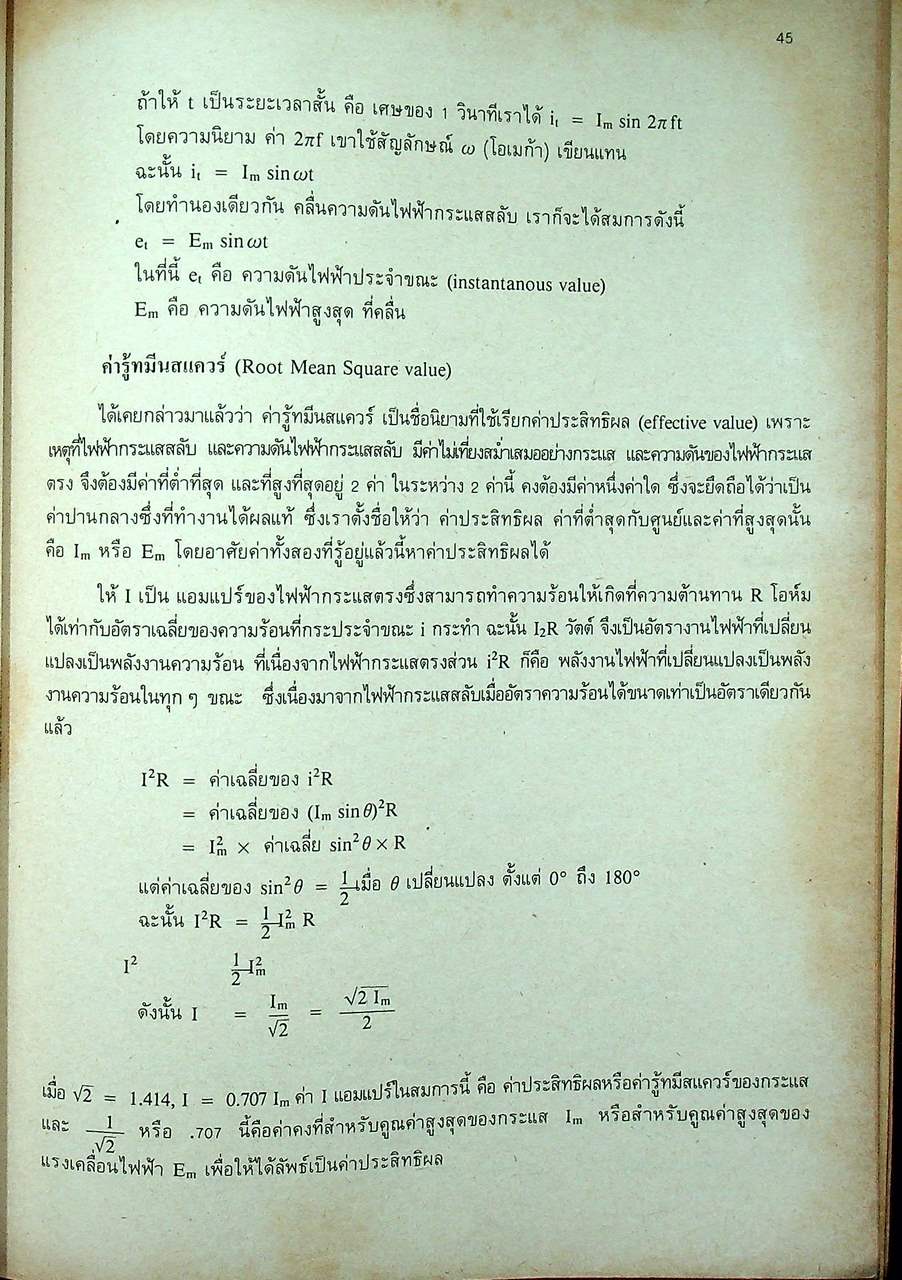 45
ถ้าให้ t เป็นระยะเวลาสั้น คือ เศษของ 1 วินาทีเราได้ iₜ = Iₘ sin 2πft
โดยความนิยาม ค่า 2πf เขาใช้สัญลักษณ์ ω (โอเมก้า) เขียนแทน
ฉะนั้น iₜ = Iₘ sinωt
โดยทำนองเดียวกัน คลื่นความดันไฟฟ้ากระแสสลับ เราก็จะได้สมการดังนี้
eₜ = Eₘ sinωt
ในที่นี้ eₜ คือ ความดันไฟฟ้าประจำขณะ (instantanous value)
Eₘ คือ ความดันไฟฟ้าสูงสุด ที่คลื่น
ค่ารู้ทมีนสแควร์ (Root Mean Square value)
ได้เคยกล่าวมาแล้วว่า ค่ารู้ทมีนสแควร์ เป็นชื่อนิยามที่ใช้เรียกค่าประสิทธิผล (effective value) เพราะ
เหตุที่ไฟฟ้ากระแสสลับ และความดันไฟฟ้ากระแสสลับ มีค่าไม่เที่ยงสม่ำเสมออย่างกระแส และความดันของไฟฟ้ากระแส
ตรง จึงต้องมีค่าที่ต่ำที่สุด และที่สูงที่สุดอยู่ 2 ค่า ในระหว่าง 2 ค่านี้ คงต้องมีค่าหนึ่งค่าใด ซึ่งจะยึดถือได้ว่าเป็น
ค่าปานกลางซึ่งที่ทำงานได้ผลแท้ ซึ่งเราตั้งชื่อให้ว่า ค่าประสิทธิผล ค่าที่ต่ำสุดกับศูนย์และค่าที่สูงสุดนั้น
คือ Iₘ หรือ Eₘ โดยอาศัยค่าทั้งสองที่รู้อยู่แล้วนี้หาค่าประสิทธิผลได้
ให้ I เป็น แอมแปร์ของไฟฟ้ากระแสตรงซึ่งสามารถทำความร้อนให้เกิดที่ความต้านทาน R โอห์ม
ได้เท่ากับอัตราเฉลี่ยของความร้อนที่กระประจำขณะ i กระทำ ฉะนั้น I₂R วัตต์ จึงเป็นอัตรางานไฟฟ้าที่เปลี่ยน
แปลงเป็นพลังงานความร้อน ที่เนื่องจากไฟฟ้ากระแสตรงส่วน i²R ก็คือ พลังงานไฟฟ้าที่เปลี่ยนแปลงเป็นพลัง
งานความร้อนในทุก ๆ ขณะ ซึ่งเนื่องมาจากไฟฟ้ากระแสสลับเมื่ออัตราความร้อนได้ขนาดเท่าเป็นอัตราเดียวกัน
แล้ว
I²R = ค่าเฉลี่ยของ i²R
= ค่าเฉลี่ยของ (Iₘ sinθ)²R
= I²ₘ × ค่าเฉลี่ย sin²θ × R
แต่ค่าเฉลี่ยของ sin²θ = 1/2 เมื่อ θ เปลี่ยนแปลง ตั้งแต่ 0° ถึง 180°
ฉะนั้น I²R = 1/2 I²ₘ R
I² 1/2 I²ₘ
ดังนั้น I = Iₘ/√2 = √2 Iₘ/2
เมื่อ √2 = 1.414, I = 0.707 Iₘ ค่า I แอมแปร์ในสมการนี้ คือ ค่าประสิทธิผลหรือค่ารู้ทมีสแควร์ของกระแส
และ 1/√2 หรือ .707 นี้คือค่าคงที่สำหรับคูณค่าสูงสุดของกระแส Iₘ หรือสำหรับคูณค่าสูงสุดของ
แรงเคลื่อนไฟฟ้า Eₘ เพื่อให้ได้ลัพธ์เป็นค่าประสิทธิผล